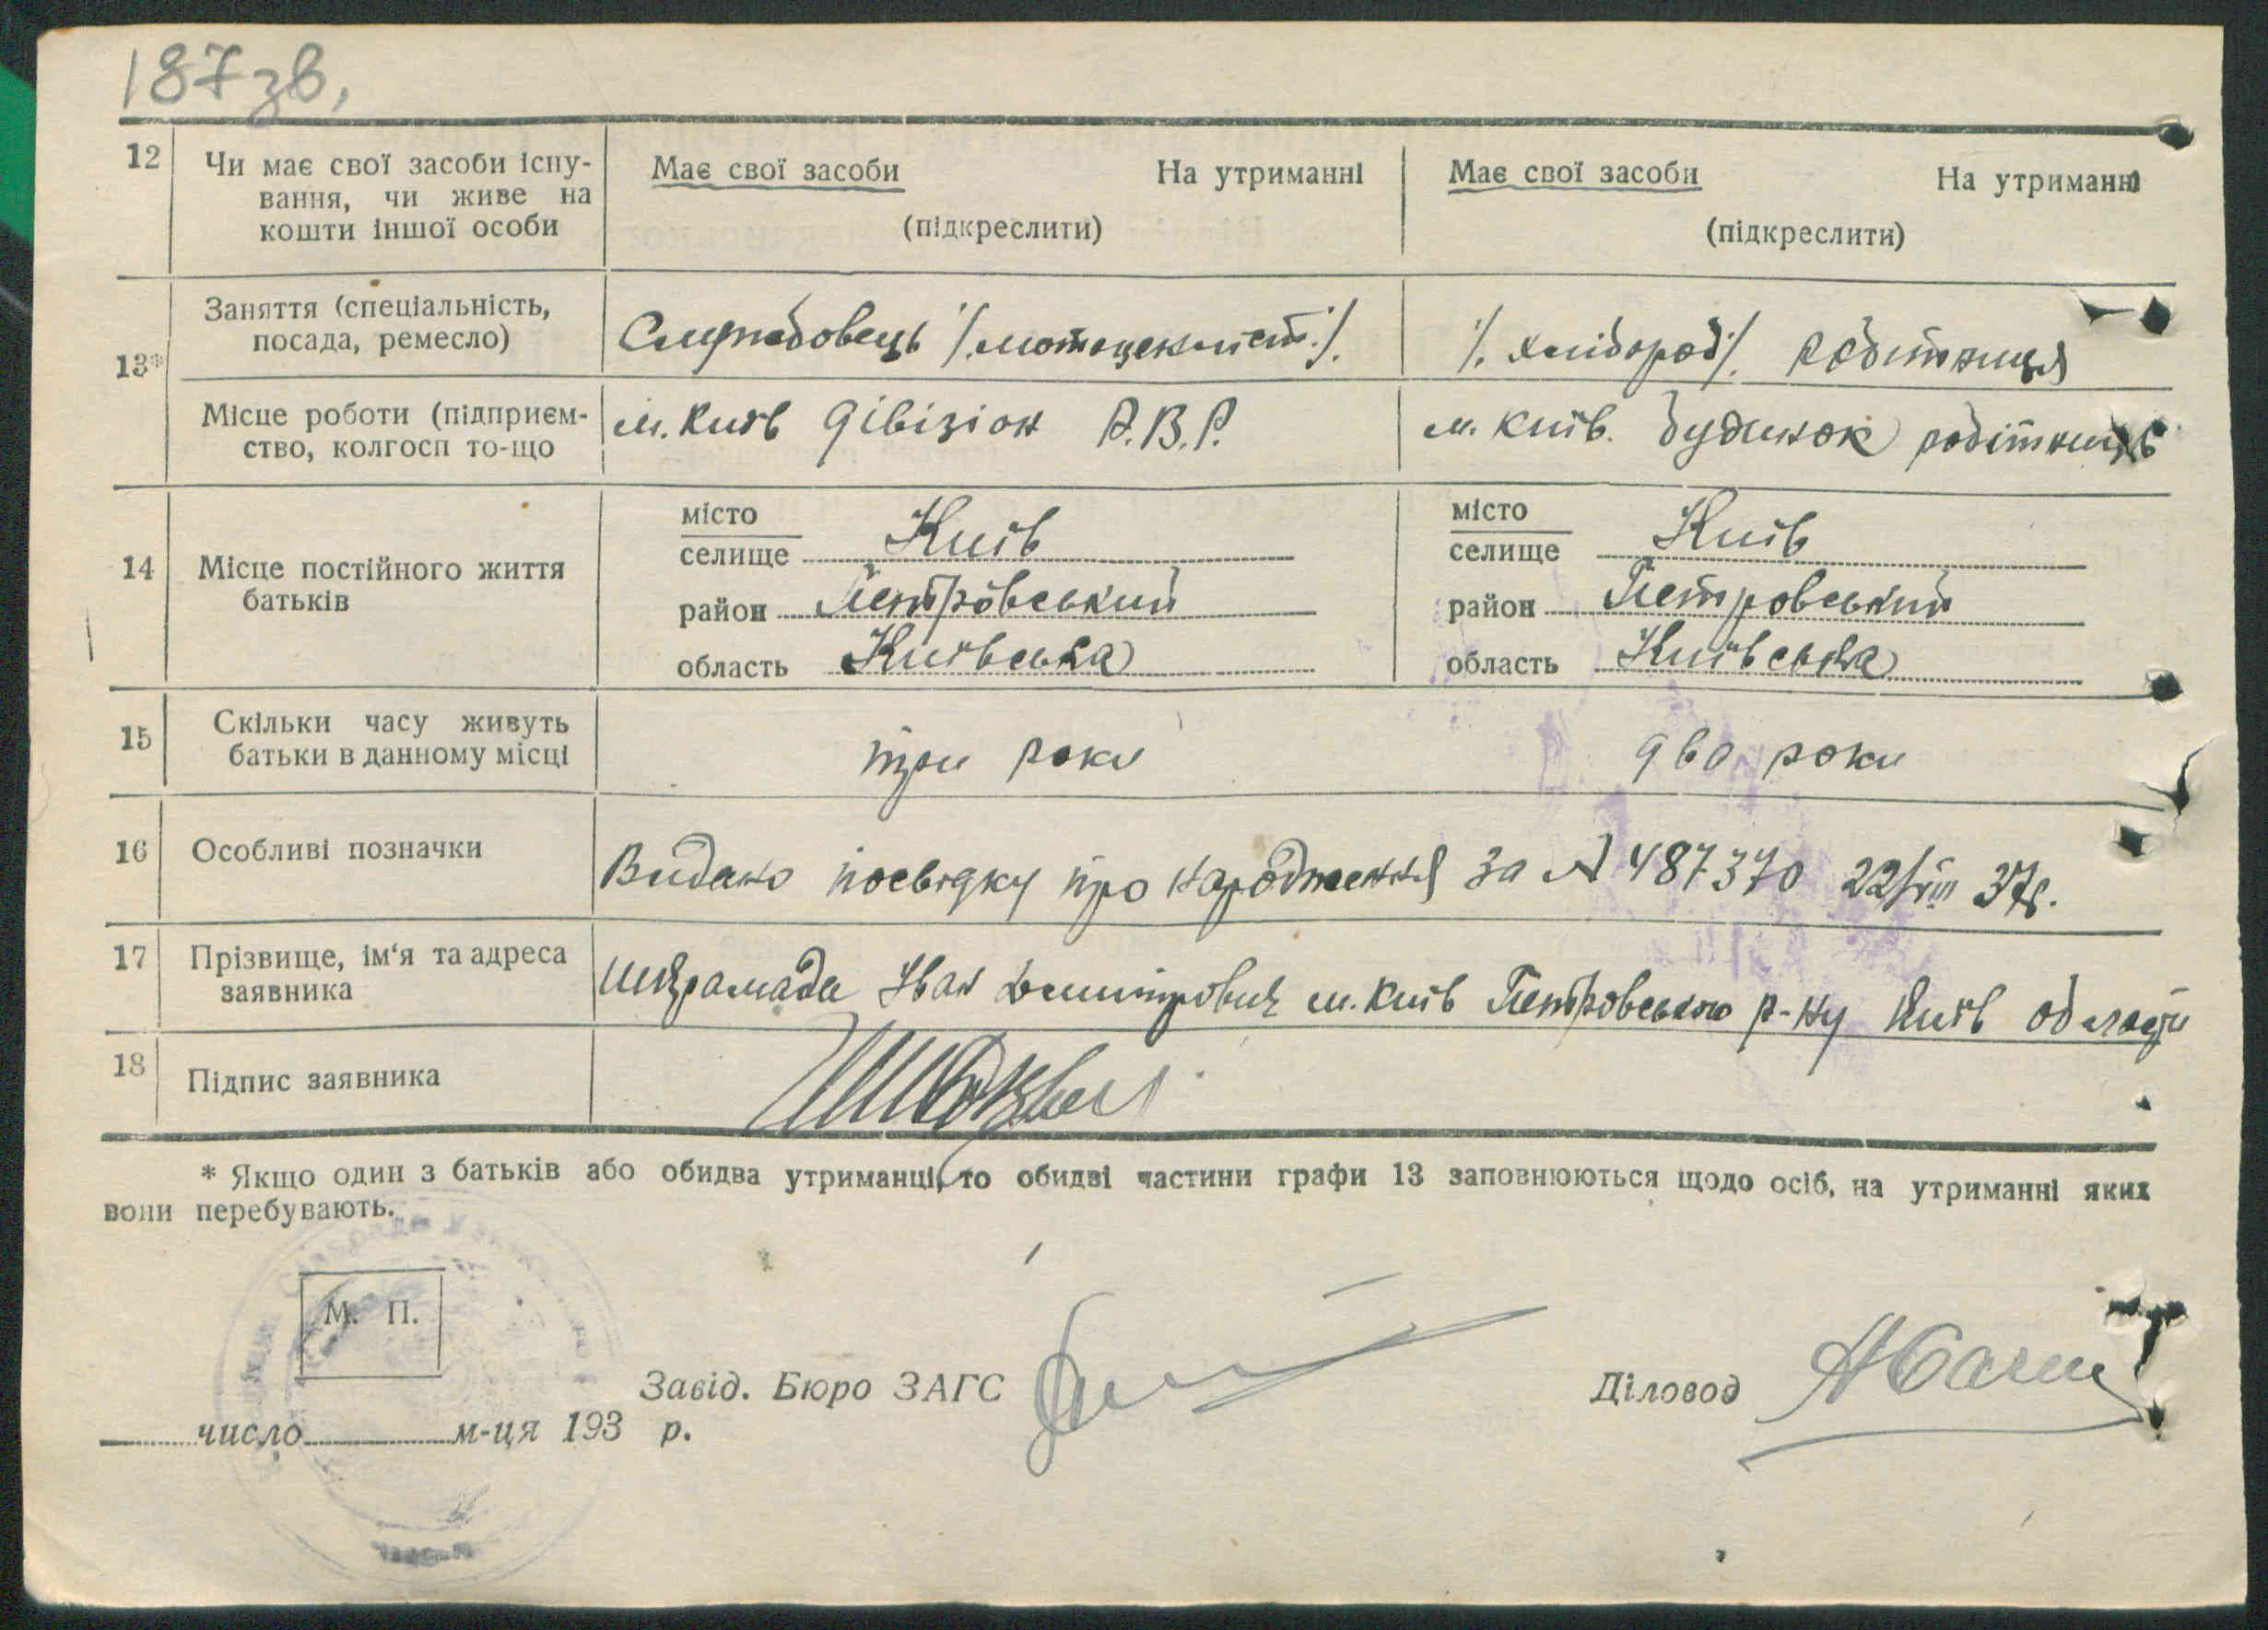 187 зв.
12 Чи має свої засоби існу-
вання, чи живе на
кошти іншої особи
Має свої засоби На утриманні
(підкреслити)
Має свої засоби На утриманні
(підкреслити)
13*
Заняття (спеціальність,
посада, ремесло)
Службовець /.мотоцекліст./.
/. хлібороб/. робітниця
Місце роботи (підприєм-
ство, колгосп то-що
м. Київ Дівізіон Р.В.Р.
м. Київ. будинок робітниць
14 Місце постійного життя
батьків
місто
селище Київ
район Петровський
область Київська
місто
селище Київ
район Петровський
область Київська
15 Скільки часу живуть
батьки в данному місці
три роки
два роки
16 Особливі позначки
Видано посвідку про народження за № 487370 22/VIII 37р.
17 Прізвище, ім'я та адреса
заявника
Іван Дмитрович м. Київ Петровського р-ну Київ області
18 Підпис заявника
* Якщо один з батьків або обидва утриманці, то обидві частини графи 13 заповнюються щодо осіб, на утриманні яких
вони перебувають.
М. П.
Завід. Бюро ЗАГС
Діловод
число м-ця 193 р.